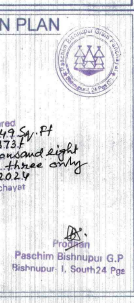 N PLAN
Paschim Bishnupur Gram Panchayat
24 Pgs
ered
49 Sq. Ft
873/-
ousand eight
three only
2024
chayat
Prodhan
Paschim Bishnupur G.P
Bishnupur-I, South24 Pgs